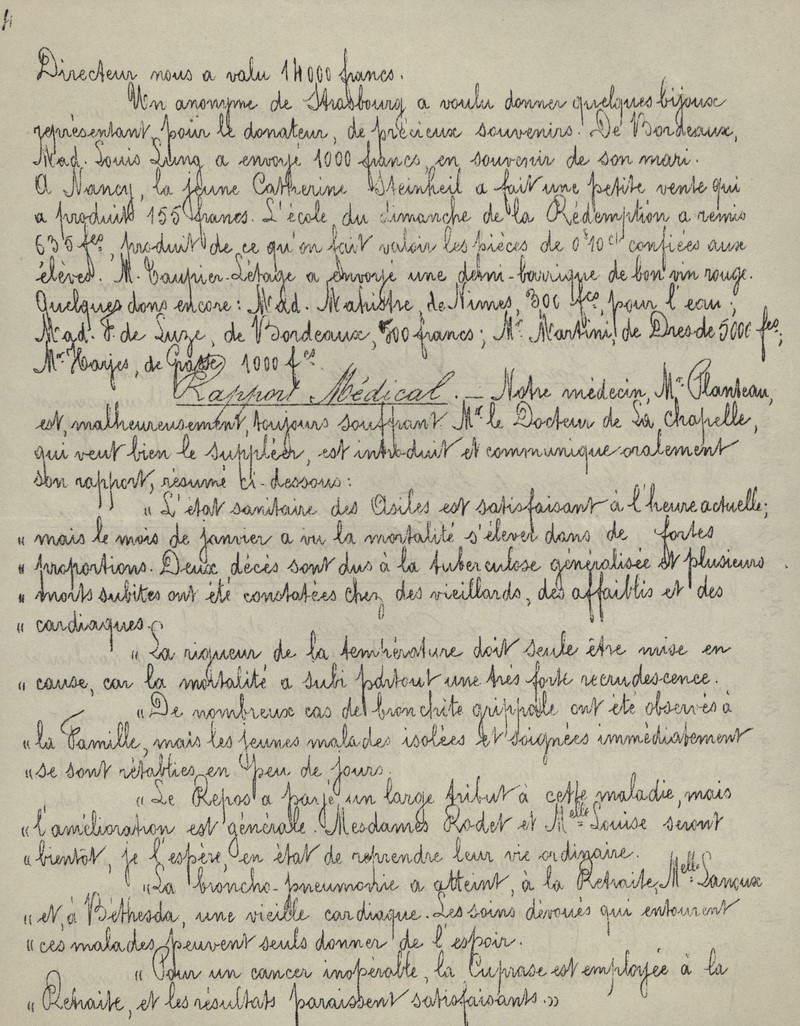 Directeur nous a valu 14000 francs.
Un anonyme de Strasbourg a voulu donner quelques bijoux
représentant, pour le donateur, de précieux souvenirs. De Bordeaux,
Mad. Louis Lung a envoyé 1000 francs, en souvenir de son mari.
A Nancy, la jeune Catherine Steinheil a fait une petite vente qui
a produit 155 francs. L'école du dimanche de la Rédemption a remis
635 fcs, produit de ce qu'on fait valoir les pièces de 0f10ct confiées aux
élèves. M. Taupier-Létage a envoyé une demi-barrique de bon vin rouge.
Quelques dons encore: Mad. Mahistre, de Nimes, 300 fcs, pour l'eau;
Mad. F. de Luze, de Bordeaux, 500 francs; Mr. Martini, de Dresde 5000 fcs;
Mr. Harjes, de Grasse, 1000 fcs.
Rapport Médical. — Notre médecin, Mr. Planteau,
est, malheureusement, toujours souffrant Mr. le Docteur de La Chapelle,
qui veut bien le suppléer, est introduit et communique oralement
son rapport, résumé ci-dessous:
" L'état sanitaire des Asiles est satisfaisant à l'heure actuelle;
" mais le mois de janvier a vu la mortalité s'élever dans de fortes
" proportions. Deux décès sont dus à la tuberculose généralisée et plusieurs
" morts subites ont été constatées chez des vieillards, des affaiblis et des
" cardiaques.
" La rigueur de la température doit seule être mise en
" cause, car la mortalité a subi partout une très forte recrudescence.
" De nombreux cas de bronchite grippale ont été observés à
" la Famille, mais les jeunes malades isolées et soignées immédiatement
" se sont rétablies en peu de jours.
" Le Repos a payé un large tribut à cette maladie, mais
" l'amélioration est générale. Mesdames Rodet et Melle Louise seront
" bientôt, je l'espère, en état de reprendre leur vie ordinaire.
" La broncho-pneumonie a atteint, à la Retraite, Melle Lanoux
" et, à Béthesda, une vieille cardiaque. Les soins dévoués qui entourent
" ces malades peuvent seuls donner de l'espoir.
" Pour un cancer inopérable, la Cuprase est employée à la
" Retraite, et les résultats paraissent satisfaisants. »